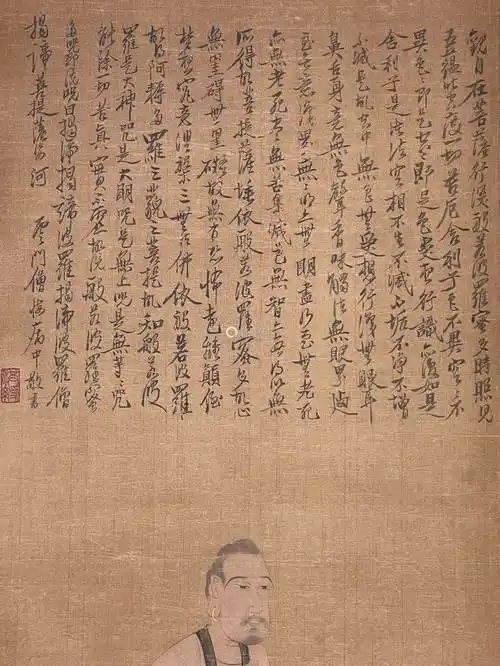 觀自在菩薩行深般若波羅蜜多時照見
五蘊皆空度一切苦厄舍利子色不異空空不
異色色即是空空即是色受想行識亦復如是
舍利子是諸法空相不生不滅不垢不淨不增
不減是故空中無色無受想行識無眼耳
鼻舌身意無色聲香味觸法無眼界乃
至無意識界無無明亦無無明盡乃至無老死
亦無老死盡無苦集滅道無智亦無得以無
所得故菩提薩埵依般若波羅蜜多故心
無罣礙無罣礙故無有恐怖遠離顛倒
夢想究竟涅槃三世諸佛依般若波羅
故得阿耨多羅三藐三菩提故知般若波
羅是大神咒是大明咒是無上咒是無等等咒
能除一切苦真實不虛故說般若波羅蜜
多咒即說咒曰揭諦揭諦波羅揭諦波羅僧
揭諦菩提薩婆訶 僧病中敬書